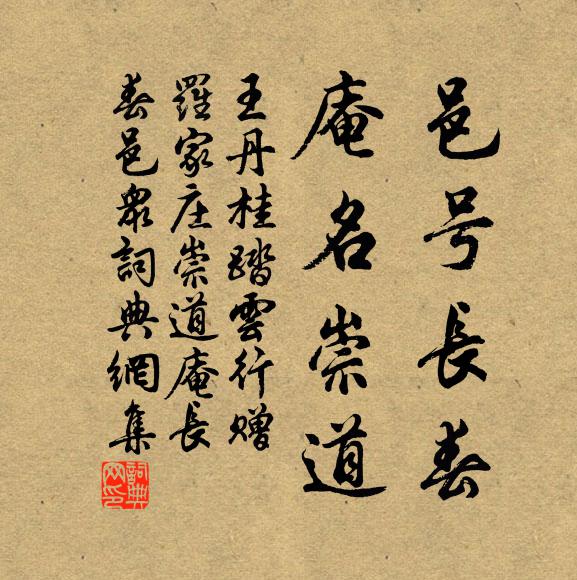 邑号長春
庵名崇道
王丹桂踏雲行赠
羅家庄崇道庵長
春邑眾詞典網集
詞典网印